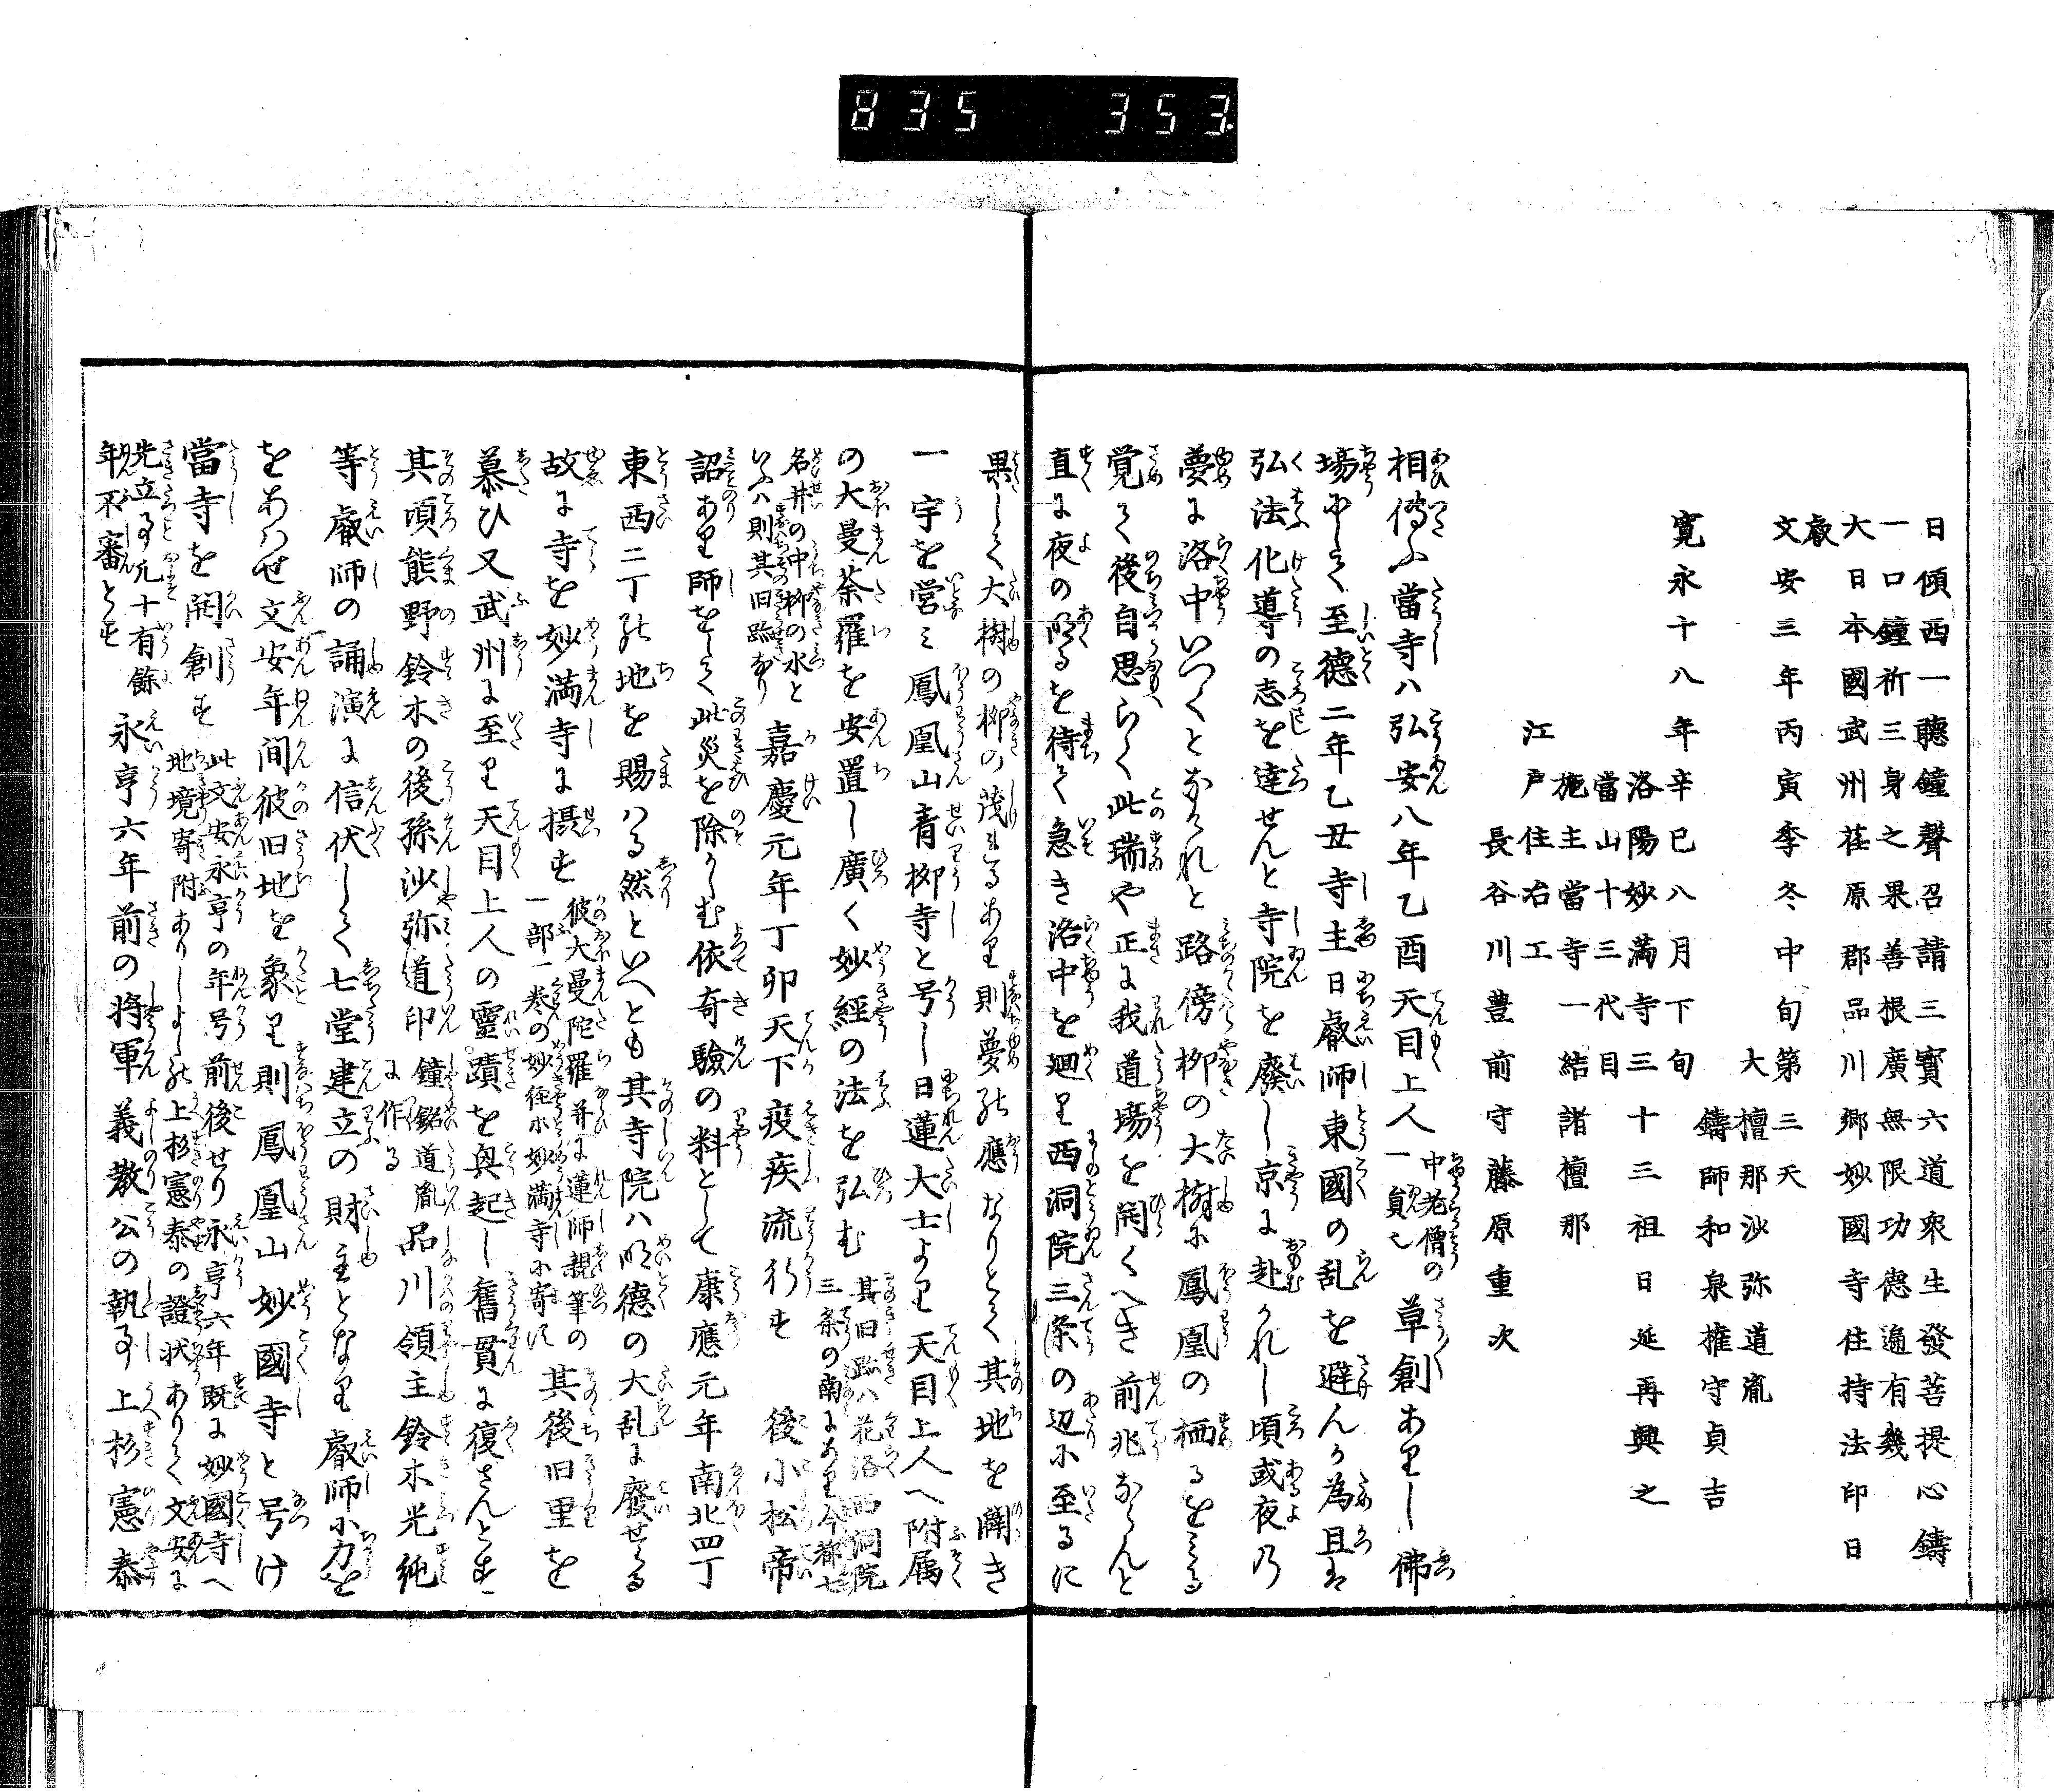 835 353
日傾西一聽鐘聲召請三寳六道衆生發菩提心鑄
一口鐘祈三身之果善根廣無限功德遍有幾
大日本國武州荏原郡品川郷妙國寺住持法印日
叡
文安三年丙寅季冬中旬第三天
大檀那沙弥道胤
鑄師和泉権守貞吉
寛永十八年辛巳八月下旬
洛陽妙満寺三十三祖日延再興之
當山十三代目
施主當寺一結諸檀那
江戸住冶工
長谷川豊前守藤原重次
相傳ふ當寺ハ弘安八年乙酉天目上人中老僧の一員也草創ありし佛
場にして至德二年乙丑寺主日叡師東國の乱を避んか為且は
弘法化導の志を達せんと寺院を廢し京に赴かれし頃或夜乃
夢に洛中いつくとなけれと路傍柳の大樹に鳳凰の栖るをみる
覚て後自思らく此瑞や正に我道場を開くへき前兆ならんと
直に夜の明るを待て急き洛中を廻り西洞院三条の辺に至るに
果して大樹の柳の茂れるあり則夢の應なりとて其地を闢き
一宇を営ミ鳳凰山青柳寺と号し日蓮大士より天目上人へ附属
の大曼荼羅を安置し廣く妙經の法を弘む其旧跡ハ花洛西洞院三条の南にあり今都七
名井の中柳の水といふハ則其旧跡なり嘉慶元年丁卯天下疫疾流行す後小松帝
詔あり師をして此災を除かしむ依奇驗の料として康應元年南北四丁
東西二丁の地を賜ハる然といへとも其寺院ハ明德の大乱に廢せる
故に寺を妙満寺に摂す彼大曼陀羅并に蓮師親筆の一部一巻の妙径は妙満寺に寄す其後旧里を
慕ひ又武州に至り天目上人の靈蹟を興起し舊貫に復さんとす
其頃熊野鈴木の後孫沙弥道印鐘銘道胤に作る品川領主鈴木光純
等叡師の誦演に信伏して七堂建立の財主となり叡師に力を
をあハせ文安年間彼旧地を象り則鳳凰山妙國寺と号け
當寺を開創す此文安永亨の年号前後せり永亨六年既に妙國寺へ地境寄附ありしよしの上杉憲泰の證状ありて文安に
先立事凡十有餘年不審とす永亨六年前の将軍義教公の執事上杉憲泰